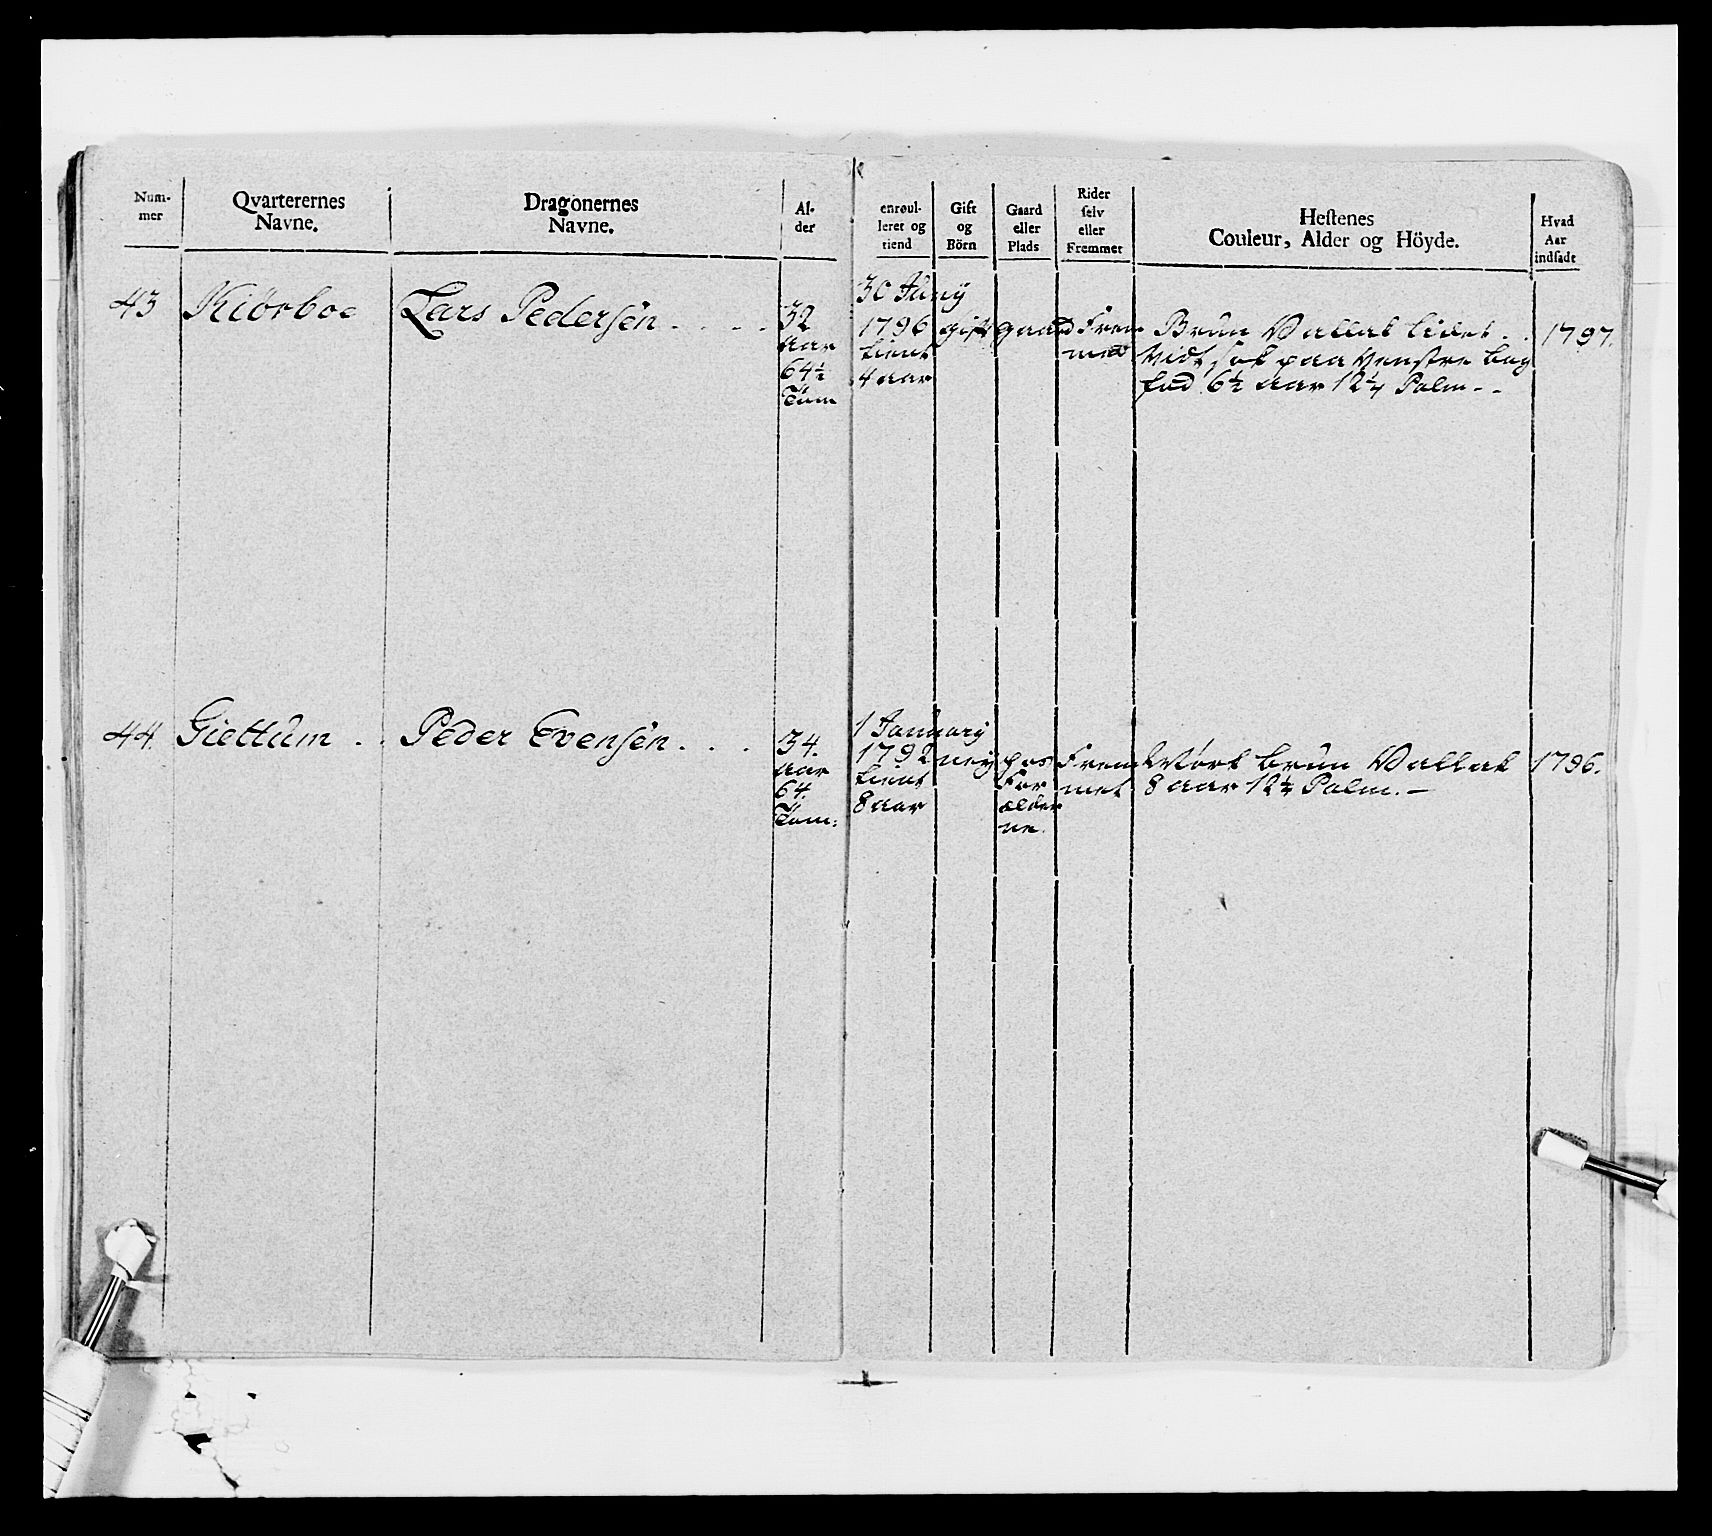 Num-
mer
Qvarterernes
Navne.
Dragonernes
Navne.
Al-
der
enroul-
leret og
tiend
Gift
og
Börn
Gaard
eller
Plads
Rider
selv
eller
Fremmet
Hestenes
Couleur, Alder og Höyde.
Hvad
Aar
indsadt
43 Kiörboe Lars Pedersen
32
aar
64½
Tom
30 Juny
1796
tient
4 aar
gift
gaard
Frem
med
Brun Vallak lidet
Vidt sok paa Venstre bag
fod 6½ aar 12¼ Palm
1797.
44. Giettum Peder Evensen
34.
aar
64.
Tom:
1 January
1792
tient
8 aar
ney
hos
For
ælder
ne.
Frem
met
Mört brun Vallak
8 aar 12¼ Palm.
1796.